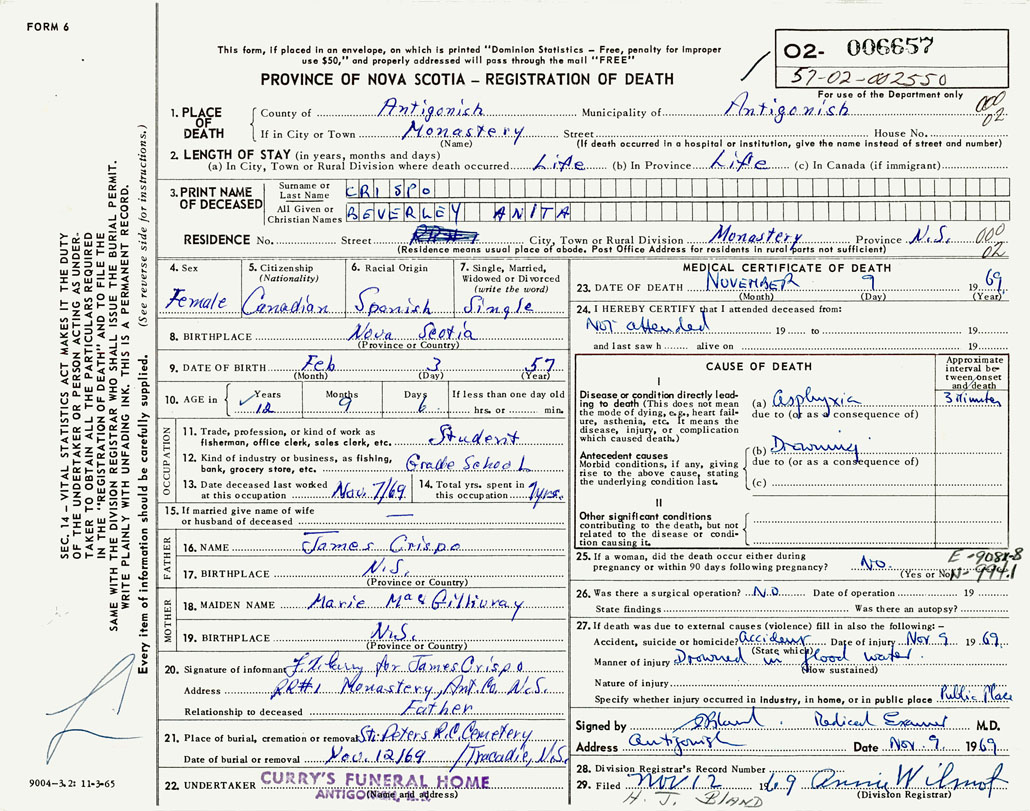 FORM 6
This form, if placed in an envelope, on which is printed "Dominion Statistics – Free, penalty for improper
use $50," and properly addressed will pass through the mail "FREE"
PROVINCE OF NOVA SCOTIA – REGISTRATION OF DEATH
02- 006657
57-02-002550
For use of the Department only
000
02
1. PLACE OF DEATH
County of Antigonish Municipality of Antigonish
If in City or Town Monastery Street House No.
(Name) (If death occurred in a hospital or institution, give the name instead of street and number)
2. LENGTH OF STAY (in years, months and days)
(a) In City, Town or Rural Division where death occurred Life (b) In Province Life (c) In Canada (if immigrant)
3. PRINT NAME OF DECEASED
Surname or Last Name CRISPO
All Given or Christian Names BEVERLEY ANITA
RESIDENCE No. Street City, Town or Rural Division Monastery Province N.S. 000
02
(Residence means usual place of abode. Post Office Address for residents in rural parts not sufficient)
4. Sex
Female
5. Citizenship
(Nationality)
Canadian
6. Racial Origin
Spanish
7. Single, Married,
Widowed or Divorced
(write the word)
Single
8. BIRTHPLACE Nova Scotia
(Province or Country)
9. DATE OF BIRTH Feb 3 57
(Month) (Day) (Year)
10. AGE in Years Months Days If less than one day old
12 9 6 hrs. or min.
OCCUPATION
11. Trade, profession, or kind of work as
fisherman, office clerk, sales clerk, etc. Student
12. Kind of industry or business, as fishing,
bank, grocery store, etc. Grade School
13. Date deceased last worked
at this occupation Nov. 7/69
14. Total yrs. spent in
this occupation 7 yrs.
15. If married give name of wife
or husband of deceased —
FATHER
16. NAME James Crispo
17. BIRTHPLACE N.S.
(Province or Country)
MOTHER
18. MAIDEN NAME Marie MacGillivray
19. BIRTHPLACE N.S.
(Province or Country)
20. Signature of informant for James Crispo
Address RR#1 Monastery, Ant. Co. N.S.
Relationship to deceased Father
21. Place of burial, cremation or removal St. Peters R.C. Cemetery
Date of burial or removal Nov. 12/69 Tracadie, N.S.
22. UNDERTAKER CURRY'S FUNERAL HOME
(Name and address)
MEDICAL CERTIFICATE OF DEATH
23. DATE OF DEATH NOVEMBER 9 1969
(Month) (Day) (Year)
24. I HEREBY CERTIFY that I attended deceased from:
Not attended 19 to 19
and last saw h alive on 19
CAUSE OF DEATH
Approximate
interval be-
tween onset
and death
I
Disease or condition directly lead-
ing to death (This does not mean
the mode of dying, e.g., heart fail-
ure, asthenia, etc. It means the
disease, injury, or complication
which caused death.)
(a) Asphyxia 3 Minutes
due to (or as a consequence of)
Antecedent causes
Morbid conditions, if any, giving
rise to the above cause, stating
the underlying condition last.
(b) Drowning
due to (or as a consequence of)
(c)
II
Other significant conditions
contributing to the death, but not
related to the disease or condi-
tion causing it.
25. If a woman, did the death occur either during
pregnancy or within 90 days following pregnancy? No.
(Yes or No)
N-994.1
26. Was there a surgical operation? No Date of operation 19
State findings Was there an autopsy?
27. If death was due to external causes (violence) fill in also the following:–
Accident, suicide or homicide? Accident Date of injury Nov. 9 1969
(State which)
Manner of injury Drowned in flood water.
(How sustained)
Nature of injury
Specify whether injury occurred in industry, in home, or in public place Public Place
Signed by Bland. Medical Examiner M.D.
Address Antigonish Date Nov. 9 1969
28. Division Registrar's Record Number
29. Filed Nov 12 1969 Annie Wilmot
(Division Registrar)
H. J. BLAND
SEC. 14 – VITAL STATISTICS ACT MAKES IT THE DUTY
OF THE UNDERTAKER OR PERSON ACTING AS UNDER-
TAKER TO OBTAIN ALL THE PARTICULARS REQUIRED
IN THE "REGISTRATION OF DEATH" AND TO FILE THE
SAME WITH THE DIVISION REGISTRAR WHO SHALL ISSUE THE BURIAL PERMIT.
WRITE PLAINLY WITH UNFADING INK. THIS IS A PERMANENT RECORD.
Every item of information should be carefully supplied. (See reverse side for instructions.)
9004-3.2: 11-3-65